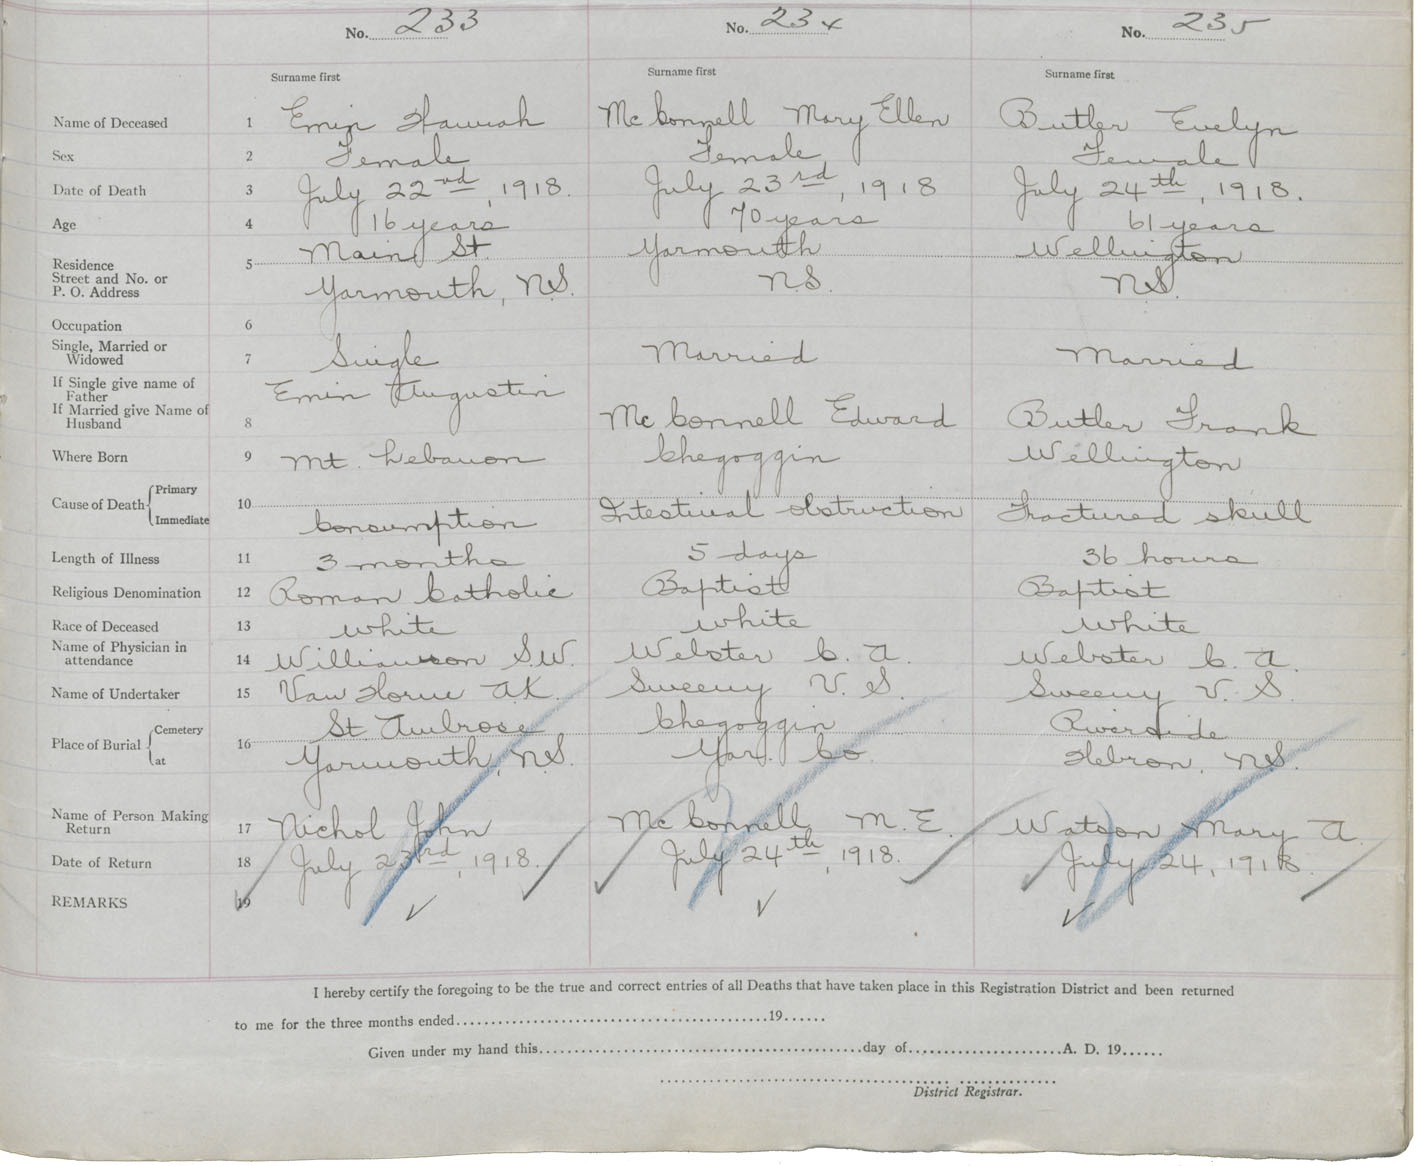 No. 233 No. 234 No. 235
Surname first Surname first Surname first
Name of Deceased 1 Emin Hannah McConnell Mary Ellen Butler Evelyn
Sex 2 Female Female Female
Date of Death 3 July 22nd, 1918. July 23rd, 1918 July 24th, 1918.
Age 4 16 years 70 years 61 years
Residence 5 Main St. Yarmouth Wellington
Street and No. or
P. O. Address Yarmouth, N.S. N.S. N.S.
Occupation 6
Single, Married or
Widowed 7 Single Married Married
If Single give name of
Father Emin Augustin
If Married give Name of
Husband 8 McConnell Edward Butler Frank
Where Born 9 Mt. Lebanon Chegoggin Wellington
Cause of Death Primary 10
Immediate Consumption Intestinal obstruction Fractured skull
Length of Illness 11 3 months 5 days 36 hours
Religious Denomination 12 Roman Catholic Baptist Baptist
Race of Deceased 13 white white white
Name of Physician in
attendance 14 Williamson S.W. Webster C. A. Webster C. A.
Name of Undertaker 15 Van Horne A.K. Sweeny V. S. Sweeny V. S.
Place of Burial Cemetery 16 St Ambrose Chegoggin Riverside
at Yarmouth, N.S. Yar. Co. Hebron, N.S.
Name of Person Making
Return 17 Nichol John McConnell M. E. Watson Mary A.
Date of Return 18 July 23rd, 1918. July 24th, 1918. July 24, 1918.
REMARKS 19
I hereby certify the foregoing to be the true and correct entries of all Deaths that have taken place in this Registration District and been returned
to me for the three months ended..........19......
Given under my hand this..........day of..........A. D. 19......
District Registrar.